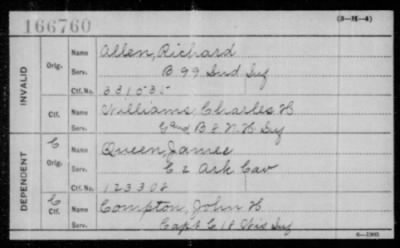 166760
(3-M-4)
INVALID
Orig.
Name Allen, Richard
Serv. B 99 Ind Inf
Ctf. No. 331035
Ctf.
Name Williams Charles H
Serv. B & N H Inf
DEPENDENT
C
Orig.
Name Queen, James
Serv. C 2 Ark Cav
Ctf. No. 123308
C
Ctf.
Name Compton, John H.
Serv. Capt C 18 Wis Inf
6-1903